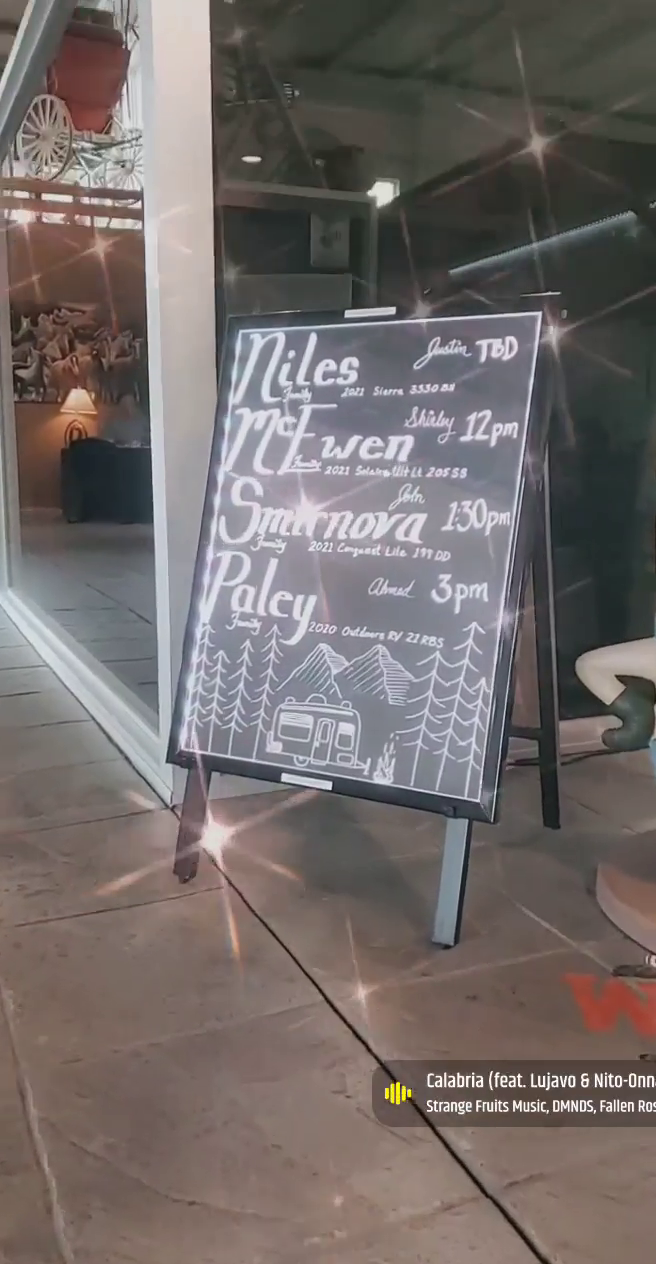 Niles Justin TBD
Family 2021 Sierra 3330BH
McEwen Shirley 12pm
Family 2021 Solaire Ult Lt 205SS
John
Smirnova 1:30pm
Family 2021 Conquest Lite 197DD
Paley Ahmed 3pm
Family 2020 Outdoors RV 21RBS
W
Calabria (feat. Lujavo & Nito-Onna
Strange Fruits Music, DMNDS, Fallen Ros